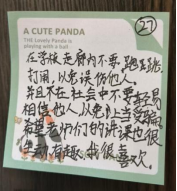 A CUTE PANDA
THE Lovely Panda is
playing with a ball
27
在学校走廊内不要跑跳
打闹，以免误伤他人。
并且不在社会中不要轻易
相信他人，以免上当受骗
希望老师们的讲课也很
生动有趣，我很喜欢。